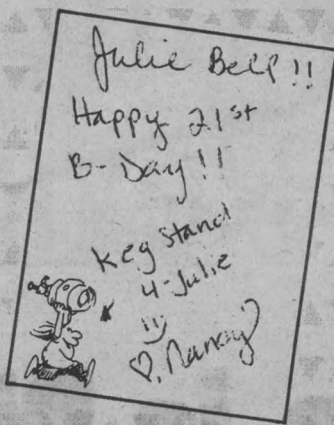 Julie Bell!!
Happy 21st
B-Day!!
Keg Stand
4-Julie
♡, Nancy